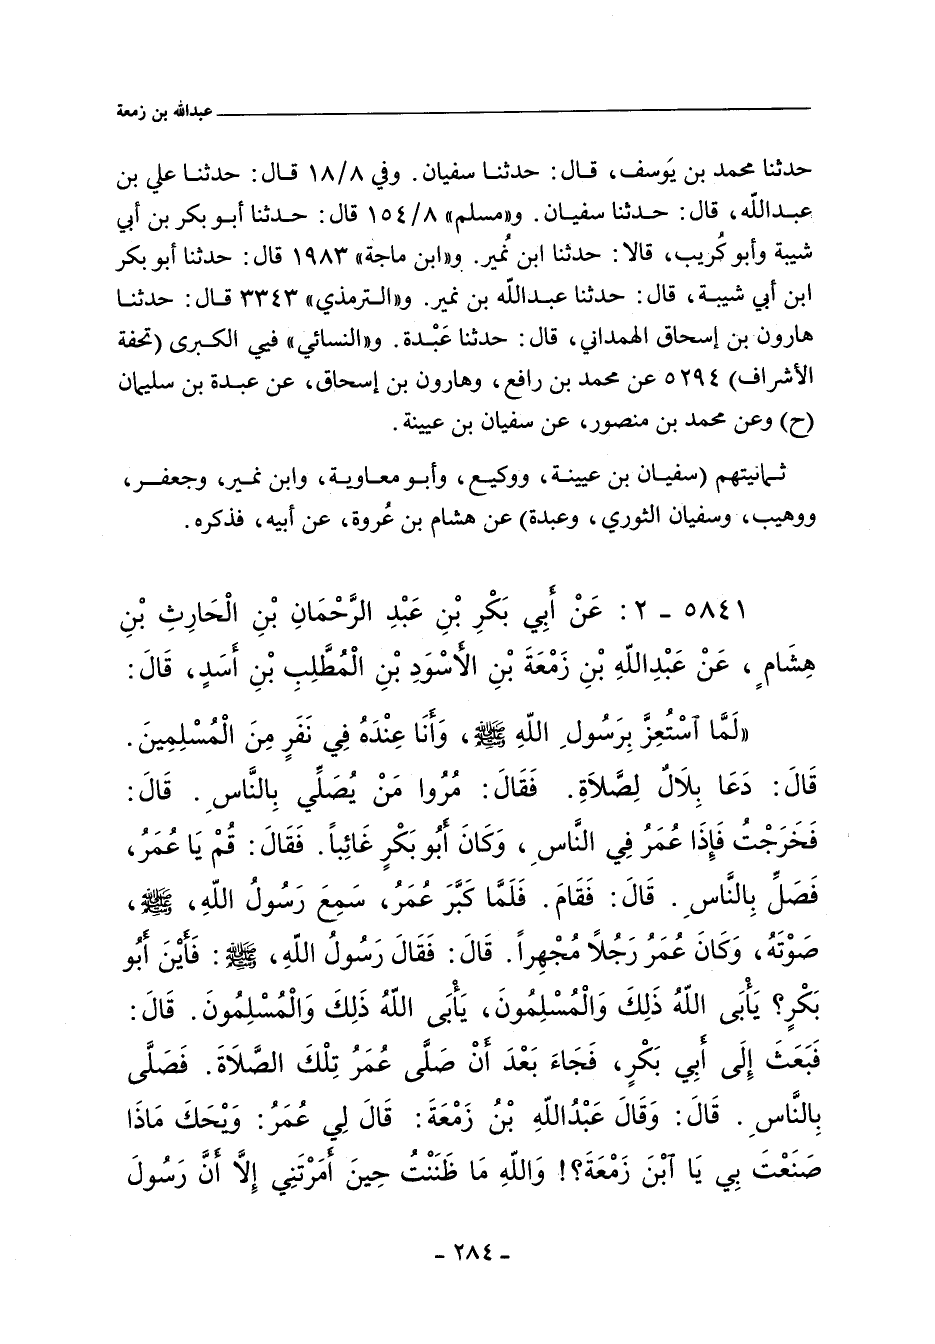 عبدالله بن زمعة
حدثنا محمد بن يَوسف، قال: حدثنا سفيان. وفي ١٨/٨ قال: حدثنا علي بن
عبدالله، قال: حدثنا سفيان. و«مسلم» ١٥٤/٨ قال: حدثنا أبو بكر بن أبي
شيبة وأبو كُريب، قالا: حدثنا ابن نُمير. و«ابن ماجة» ١٩٨٣ قال: حدثنا أبو بكر
ابن أبي شيبة، قال: حدثنا عبدالله بن نمير. و«الترمذي» ٣٣٤٣ قال: حدثنا
هارون بن إسحاق الهمداني، قال: حدثنا عَبْدة. و«النسائي» فيي الكبرى (تحفة
الأشراف) ٥٢٩٤ عن محمد بن رافع، وهارون بن إسحاق، عن عبدة بن سليمان
(ح) وعن محمد بن منصور، عن سفيان بن عيينة.
ثمانيتهم (سفيان بن عيينة، ووكيع، وأبو معاوية، وابن نمير، وجعفر،
ووهيب، وسفيان الثوري، وعبدة) عن هشام بن عُروة، عن أبيه، فذكره.
٥٨٤١ - ٢: عَنْ أَبِي بَكْرِ بْنِ عَبْدِ الرَّحْمَانِ بْنِ الْحَارِثِ بْنِ
هِشَامٍ، عَنْ عَبْدِاللهِ بْنِ زَمْعَةَ بْنِ الأَسْوَدِ بْنِ الْمُطَّلِبِ بْنِ أَسَدٍ، قَالَ:
«لَمَّا ٱسْتُعِزَّ بِرَسُولِ اللهِ ﷺ، وَأَنَا عِنْدَهُ فِي نَفَرٍ مِنَ الْمُسْلِمِينَ.
قَالَ: دَعَا بِلَالٌ لِصَّلاَةِ. فَقَالَ: مُرُوا مَنْ يُصَلِّي بِالنَّاسِ. قَالَ:
فَخَرَجْتُ فَإِذَا عُمَرُ فِي النَّاسِ، وَكَانَ أَبُو بَكْرٍ غَائِباً. فَقَالَ: قُمْ يَا عُمَرُ،
فَصَلِّ بِالنَّاسِ. قَالَ: فَقَامَ. فَلَمَّا كَبَّرَ عُمَرُ، سَمِعَ رَسُولُ اللهِ، ﷺ،
صَوْتَهُ، وَكَانَ عُمَرُ رَجُلاً مُجْهِراً. قَالَ: فَقَالَ رَسُولُ اللهِ، ﷺ: فَأَيْنَ أَبُو
بَكْرٍ؟ يَأْبَى اللهُ ذَلِكَ وَالْمُسْلِمُونَ، يَأْبَى اللهُ ذَلِكَ وَالْمُسْلِمُونَ. قَالَ:
فَبَعَثَ إِلَى أَبِي بَكْرٍ، فَجَاءَ بَعْدَ أَنْ صَلَّى عُمَرُ تِلْكَ الصَّلَاةَ. فَصَلَّى
بِالنَّاسِ. قَالَ: وَقَالَ عَبْدُاللهِ بْنُ زَمْعَةَ: قَالَ لِي عُمَرُ: وَيْحَكَ مَاذَا
صَنَعْتَ بِي يَا ٱبْنَ زَمْعَةَ؟! وَاللهِ مَا ظَنَنْتُ حِينَ أَمَرْتَنِي إِلاَّ أَنَّ رَسُولَ
- ٢٨٤ -